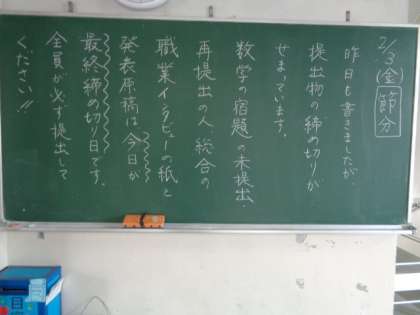 2/3(金) 節分
昨日も書きましたが、
提出物の締め切りが
せまっています。
数学の宿題の未提出・
再提出の人、総合の
職業インタビューの紙と
発表原稿は今日が
最終締め切り日です。
全員が必ず提出して
ください!!